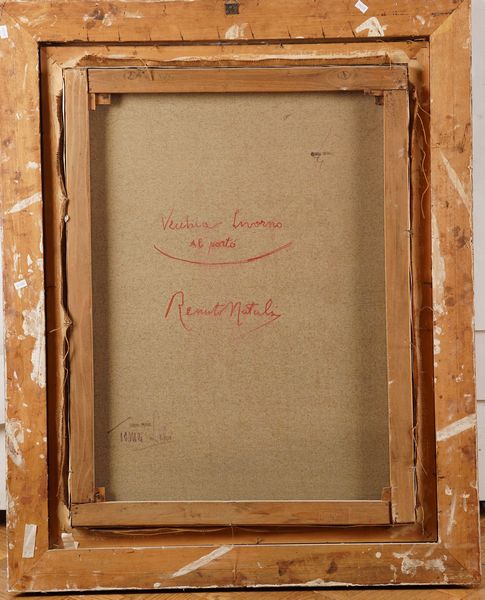 Vecchia Livorno
al porto
Renato Natali